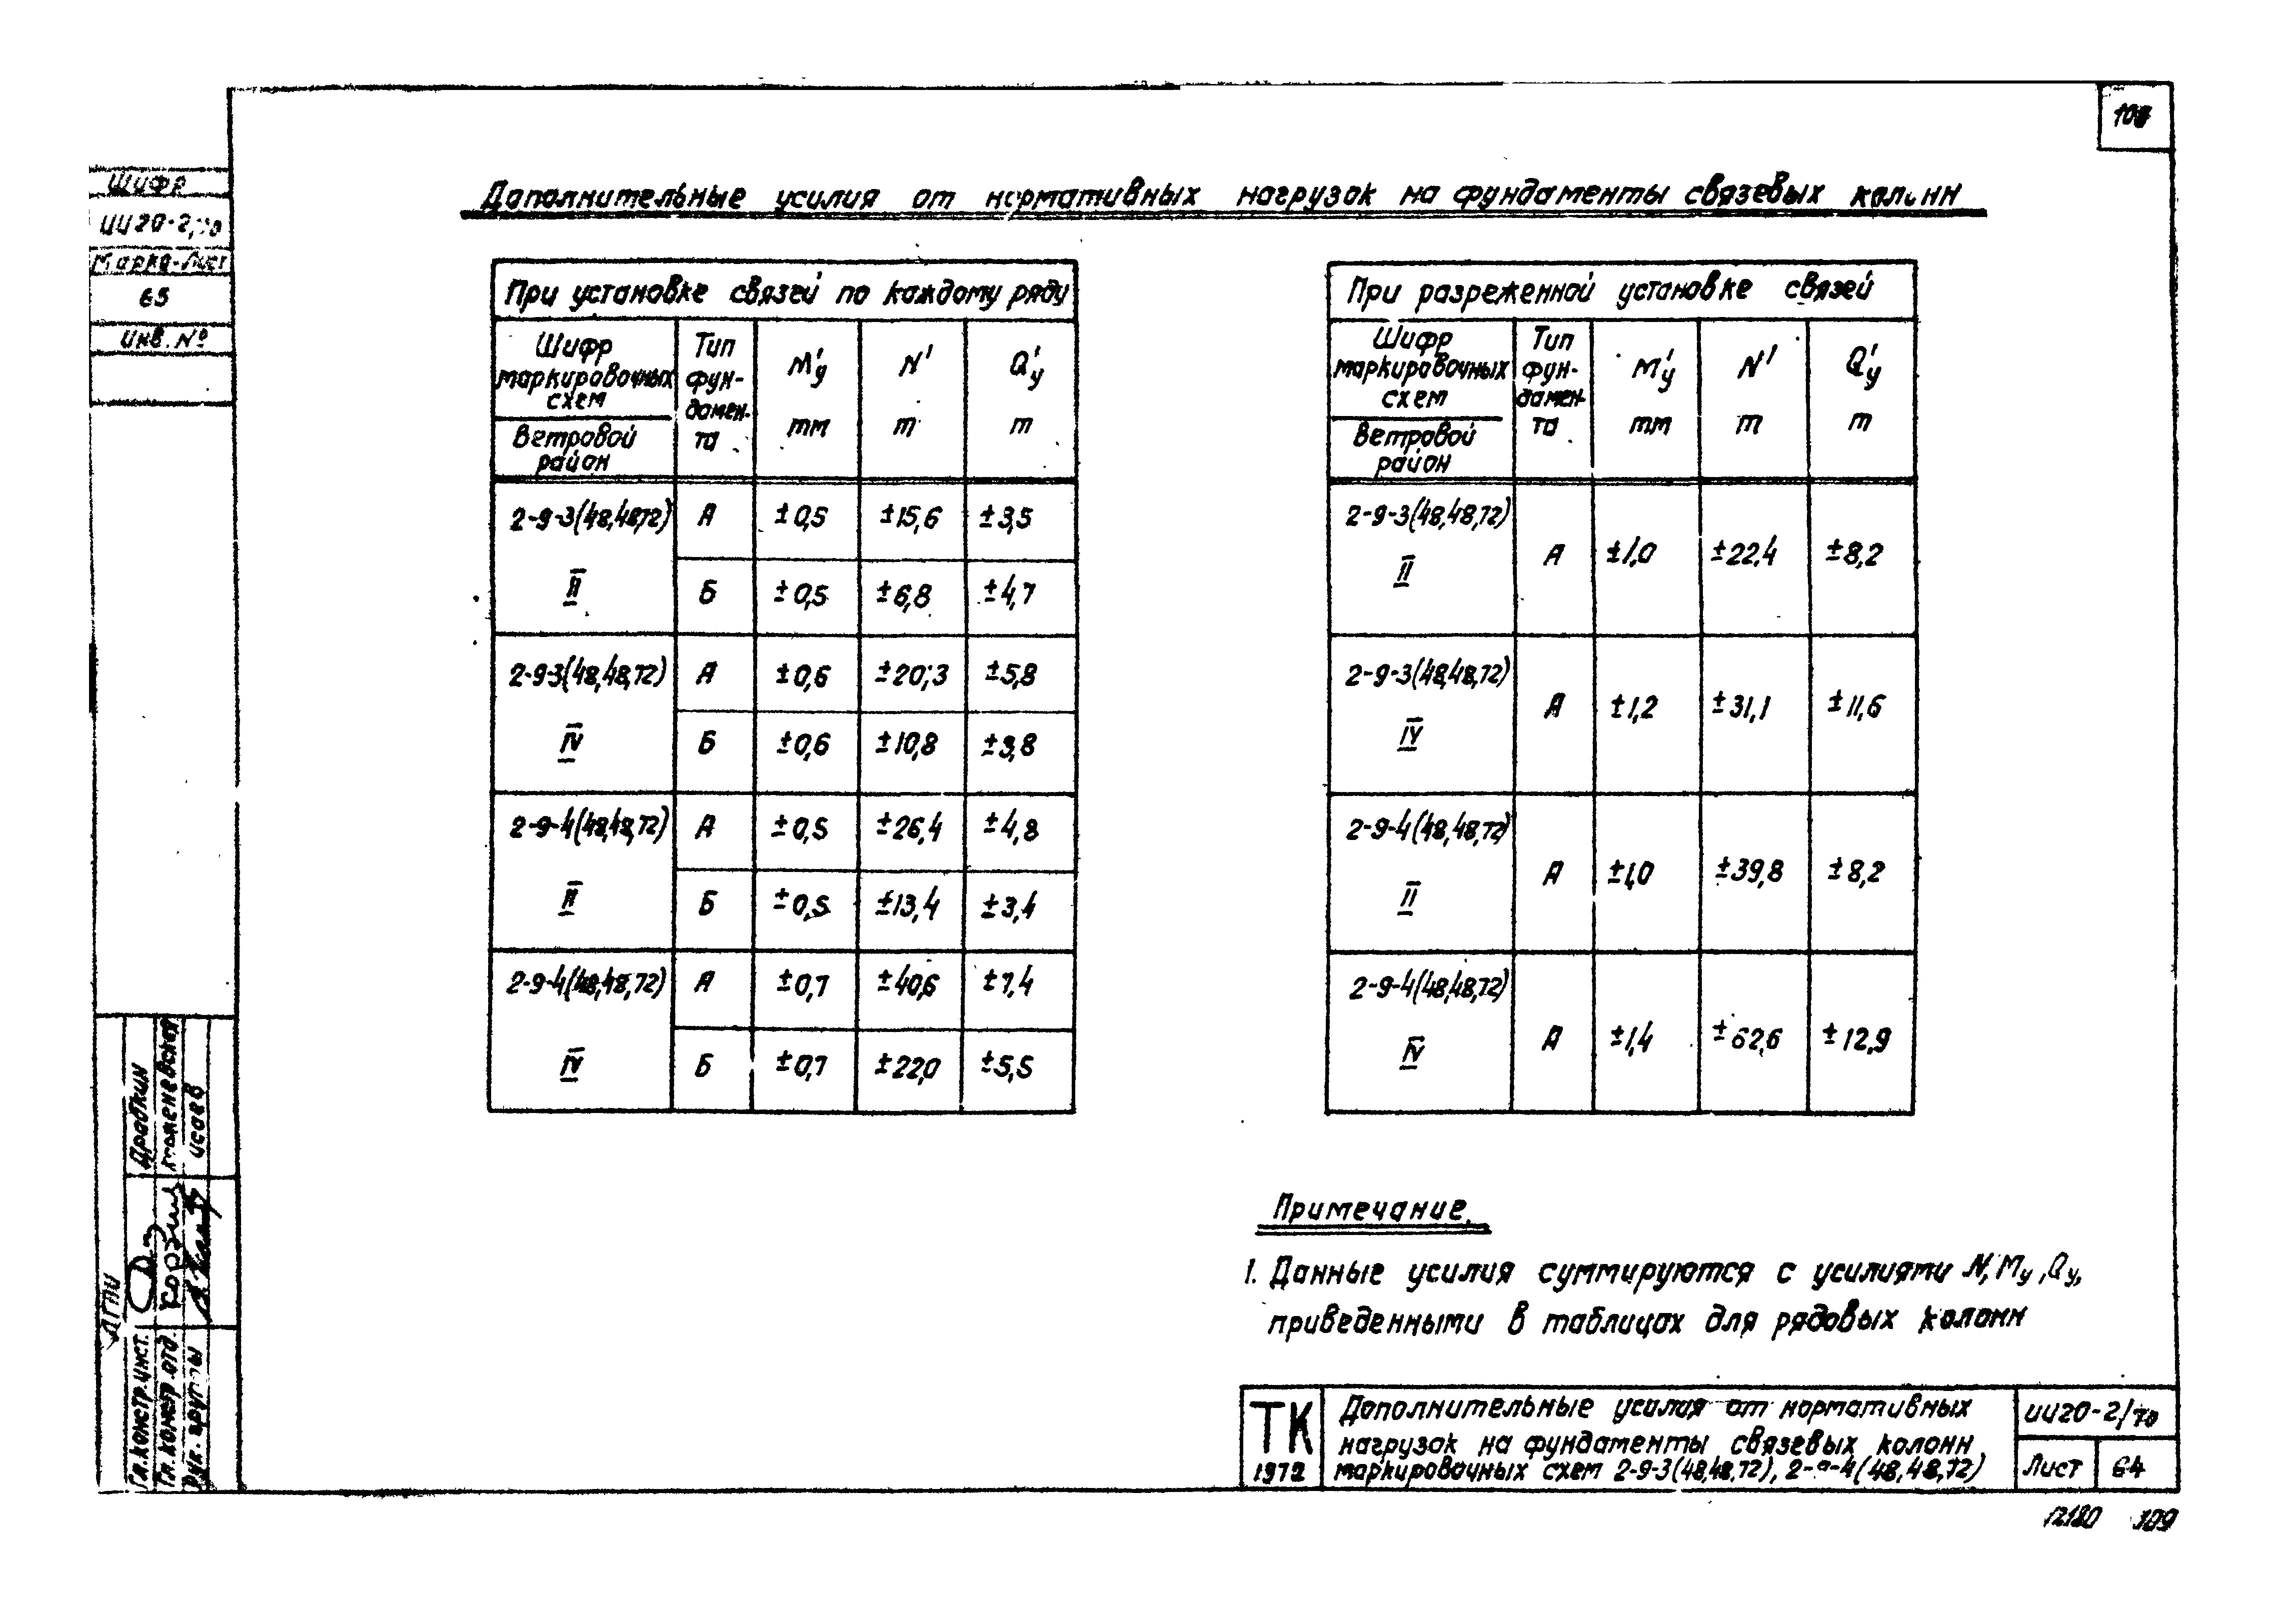 Дополнительные усилия от нормативных нагрузок на фундаменты связевых колонн
Шифр
ИИ20-2/70
Марка-Лист
65
Инв. №
При установке связей по каждому ряду
Шифр маркировочных схем / Ветровой район | Тип фундамента | M'у тм | N' т | Q'у т
2-9-3(48,48,72) II | А | ±0,5 | ±15,6 | ±3,5
Б | ±0,5 | ±6,8 | ±4,7
2-9-3(48,48,72) IV | А | ±0,6 | ±20,3 | ±5,8
Б | ±0,6 | ±10,8 | ±3,8
2-9-4(48,48,72) II | А | ±0,5 | ±26,4 | ±4,8
Б | ±0,5 | ±13,4 | ±3,4
2-9-4(48,48,72) IV | А | ±0,7 | ±40,6 | ±7,4
Б | ±0,7 | ±22,0 | ±5,5
При разреженной установке связей
Шифр маркировочных схем / Ветровой район | Тип фундамента | M'у тм | N' т | Q'у т
2-9-3(48,48,72) II | А | ±1,0 | ±22,4 | ±8,2
2-9-3(48,48,72) IV | А | ±1,2 | ±31,1 | ±11,6
2-9-4(48,48,72) II | А | ±1,0 | ±39,8 | ±8,2
2-9-4(48,48,72) IV | А | ±1,4 | ±62,6 | ±12,9
Примечание.
1. Данные усилия суммируются с усилиями N, Mу, Qу,
приведенными в таблицах для рядовых колонн
ТК
1972
Дополнительные усилия от нормативных
нагрузок на фундаменты связевых колонн
маркировочных схем 2-9-3(48,48,72), 2-9-4(48,48,72)
ИИ20-2/70
Лист 64
12180 109
ДГПИ
Гл.констр.инст. Драбкин
Гл.констр.отд.
Рук. группы Исаев